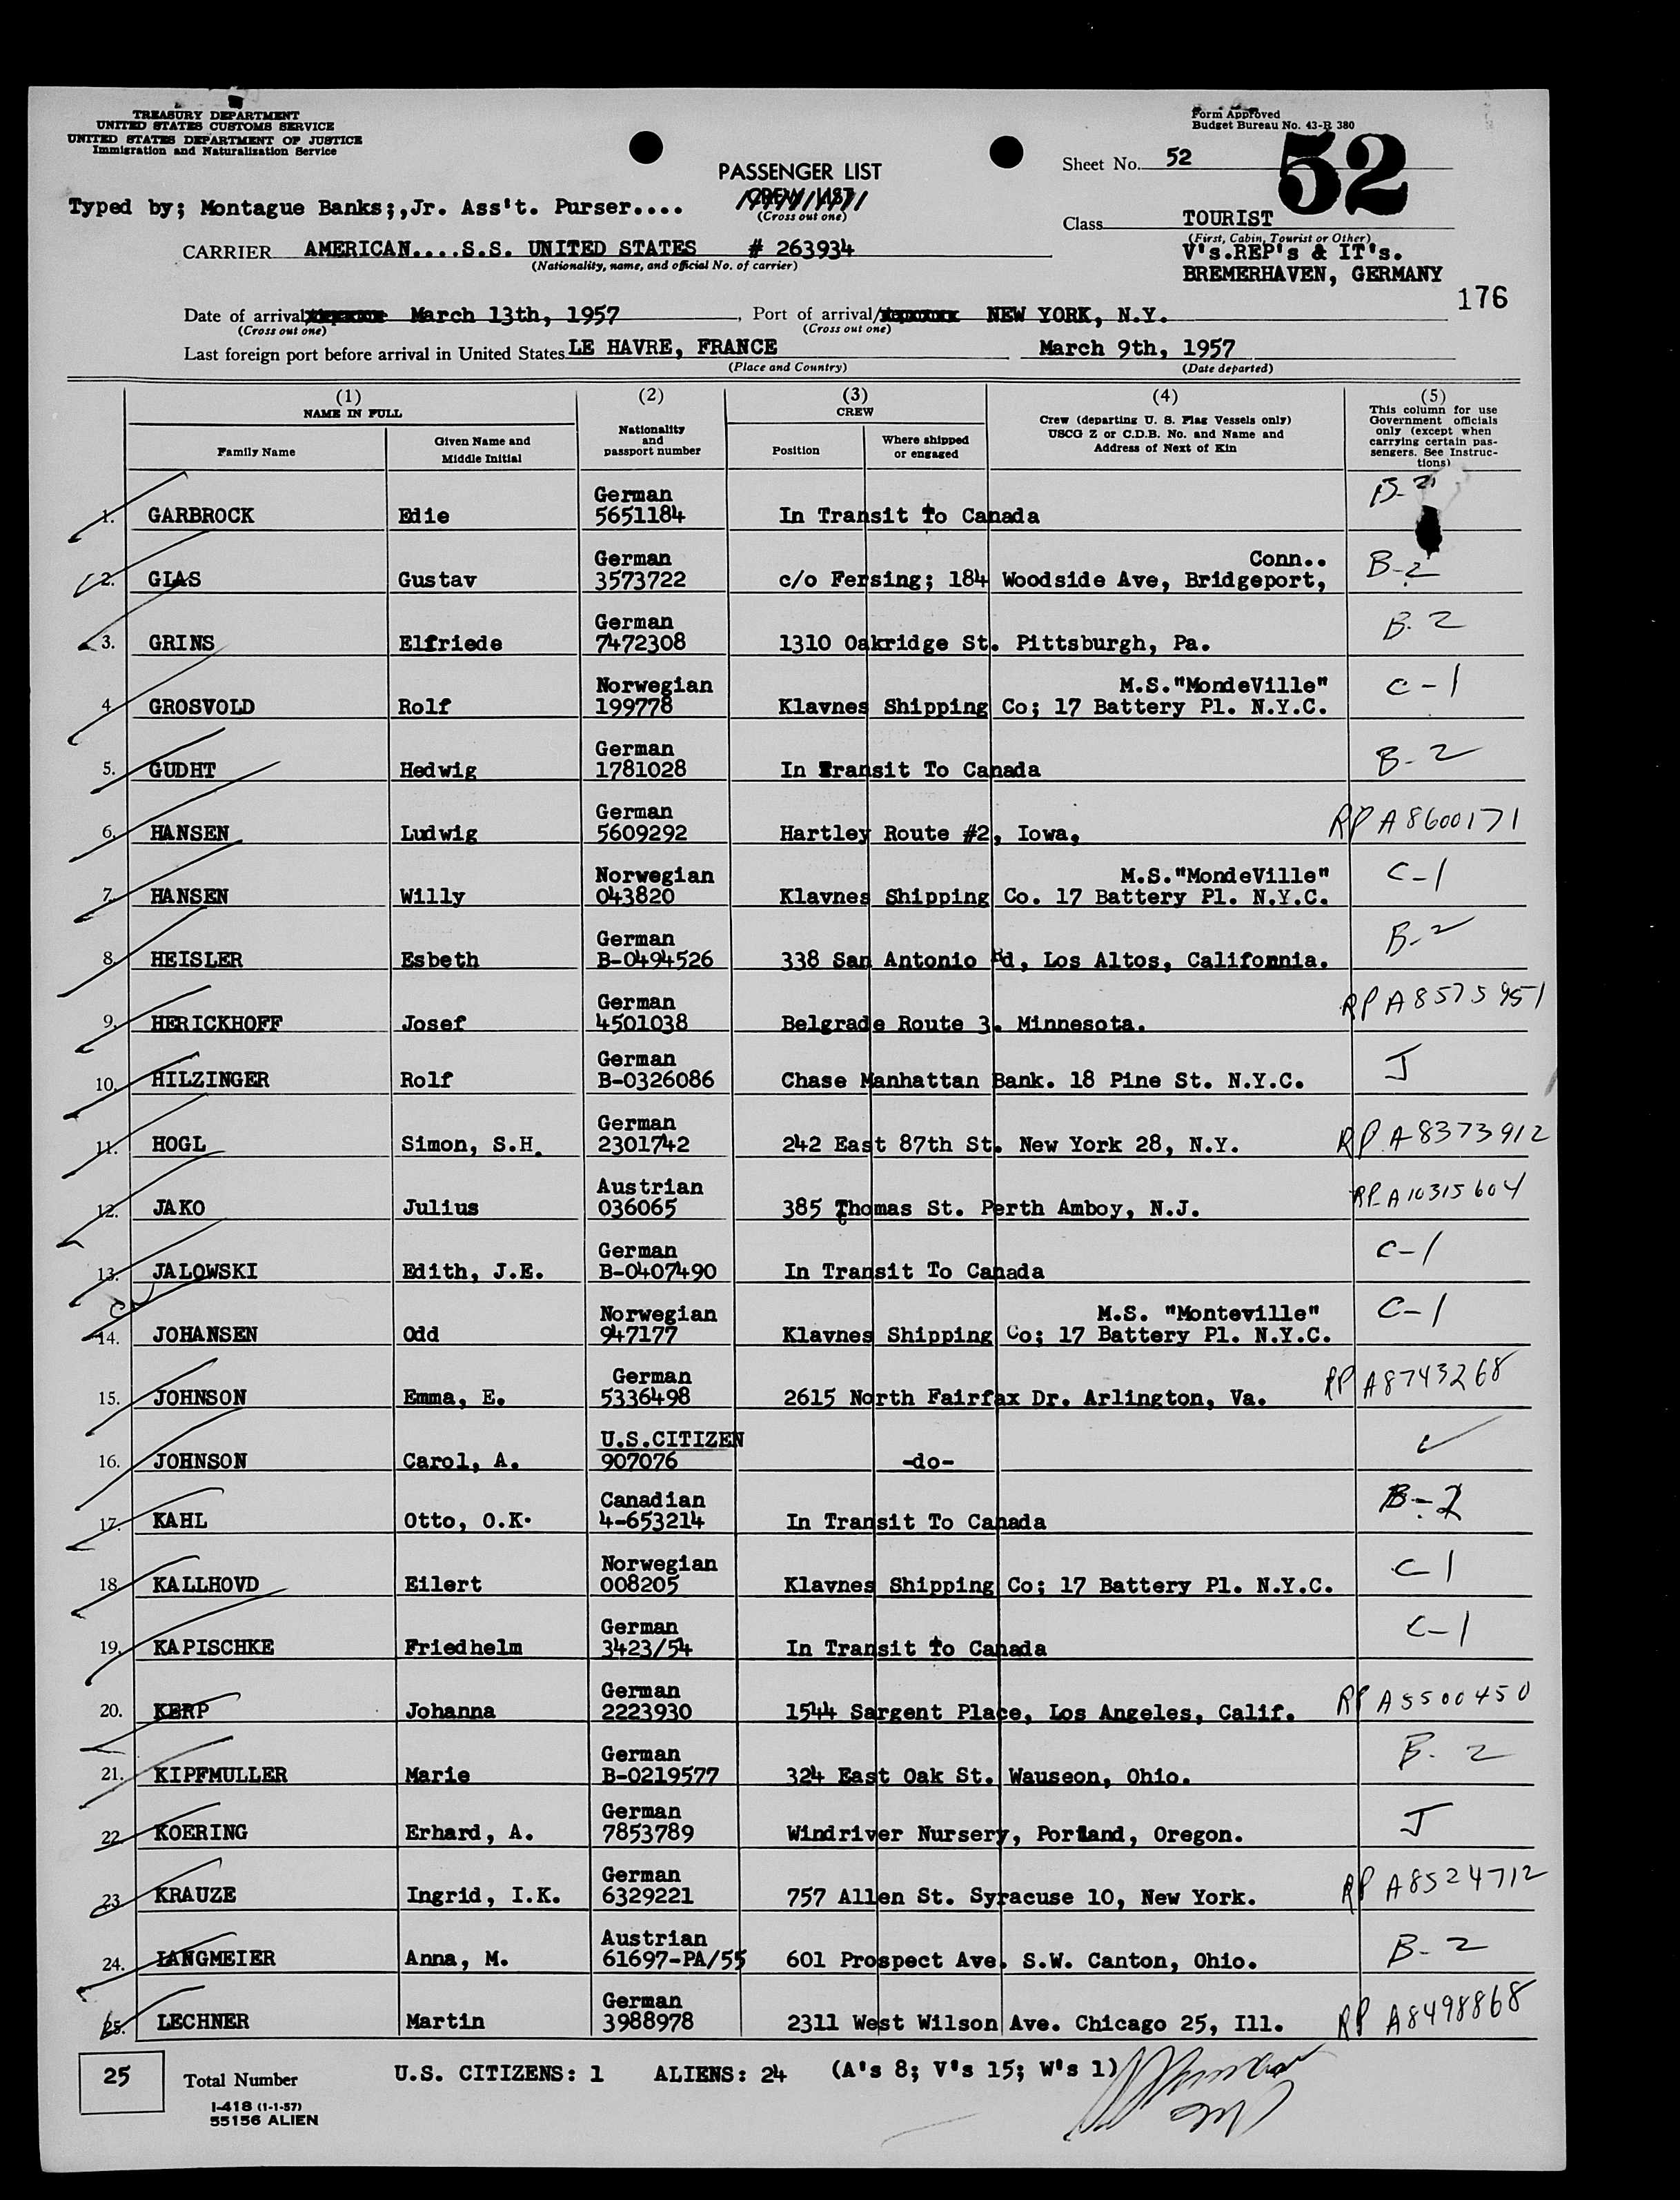 TREASURY DEPARTMENT
UNITED STATES CUSTOMS SERVICE
UNITED STATES DEPARTMENT OF JUSTICE
Immigration and Naturalization Service
Form Approved
Budget Bureau No. 43-R 380
PASSENGER LIST
CREW LIST
(Cross out one)
Sheet No. 52
52
Typed by; Montague Banks;,Jr. Ass't. Purser....
Class TOURIST
(First, Cabin, Tourist or Other)
V's.REP's & IT's.
BREMERHAVEN, GERMANY
CARRIER AMERICAN....S.S. UNITED STATES # 263934
(Nationality, name, and official No. of carrier)
176
Date of arrival/ March 13th, 1957, Port of arrival/ NEW YORK, N.Y.
(Cross out one) (Cross out one)
Last foreign port before arrival in United States LE HAVRE, FRANCE March 9th, 1957
(Place and Country) (Date departed)
(1) NAME IN FULL
Family Name
Given Name and Middle Initial
(2) Nationality and passport number
(3) CREW
Position
Where shipped or engaged
(4) Crew (departing U. S. Flag Vessels only) USCG Z or C.D.B. No. and Name and Address of Next of Kin
(5) This column for use Government officials only (except when carrying certain passengers. See Instructions)
1. GARBROCK Edie German 5651184 In Transit To Canada B-2
2. GIAS Gustav German 3573722 c/o Fersing; 184 Woodside Ave, Bridgeport, Conn.. B-2
3. GRINS Elfriede German 7472308 1310 Oakridge St. Pittsburgh, Pa. B-2
4. GROSVOLD Rolf Norwegian 199778 Klavnes Shipping Co; 17 Battery Pl. N.Y.C. M.S."MondeVille" C-1
5. GUDHT Hedwig German 1781028 In Transit To Canada B-2
6. HANSEN Ludwig German 5609292 Hartley Route #2, Iowa, RP A8600171
7. HANSEN Willy Norwegian 043820 Klavnes Shipping Co. 17 Battery Pl. N.Y.C. M.S."MondeVille" C-1
8. HEISLER Esbeth German B-0494526 338 San Antonio Rd, Los Altos, California. B-2
9. HERICKHOFF Josef German 4501038 Belgrade Route 3. Minnesota. RP A8575951
10. HILZINGER Rolf German B-0326086 Chase Manhattan Bank. 18 Pine St. N.Y.C. J
11. HOGL Simon, S.H. German 2301742 242 East 87th St. New York 28, N.Y. RP A8373912
12. JAKO Julius Austrian 036065 385 Thomas St. Perth Amboy, N.J. RP A10315604
13. JALOWSKI Edith, J.E. German B-0407490 In Transit To Canada C-1
14. JOHANSEN Odd Norwegian 947177 Klavnes Shipping Co; 17 Battery Pl. N.Y.C. M.S. "Monteville" C-1
15. JOHNSON Emma, E. German 5336498 2615 North Fairfax Dr. Arlington, Va. RP A8743268
16. JOHNSON Carol, A. U.S.CITIZEN 907076 -do-
17. KAHL Otto, O.K. Canadian 4-653214 In Transit To Canada B-2
18. KALLHOVD Eilert Norwegian 008205 Klavnes Shipping Co; 17 Battery Pl. N.Y.C. C1
19. KAPISCHKE Friedhelm German 3423/54 In Transit To Canada C-1
20. KERP Johanna German 2223930 1544 Sargent Place, Los Angeles, Calif. RP A5500450
21. KIPFMULLER Marie German B-0219577 324 East Oak St. Wauseon, Ohio. B-2
22. KOERING Erhard, A. German 7853789 Windriver Nursery, Portland, Oregon. J
23. KRAUZE Ingrid, I.K. German 6329221 757 Allen St. Syracuse 10, New York. RP A8524712
24. LANGMEIER Anna, M. Austrian 61697-PA/55 601 Prospect Ave. S.W. Canton, Ohio. B-2
25. LECHNER Martin German 3988978 2311 West Wilson Ave. Chicago 25, Ill. RP A8498868
25 Total Number U.S. CITIZENS: 1 ALIENS: 24 (A's 8; V's 15; W's 1)
I-418 (1-1-57)
55156 ALIEN